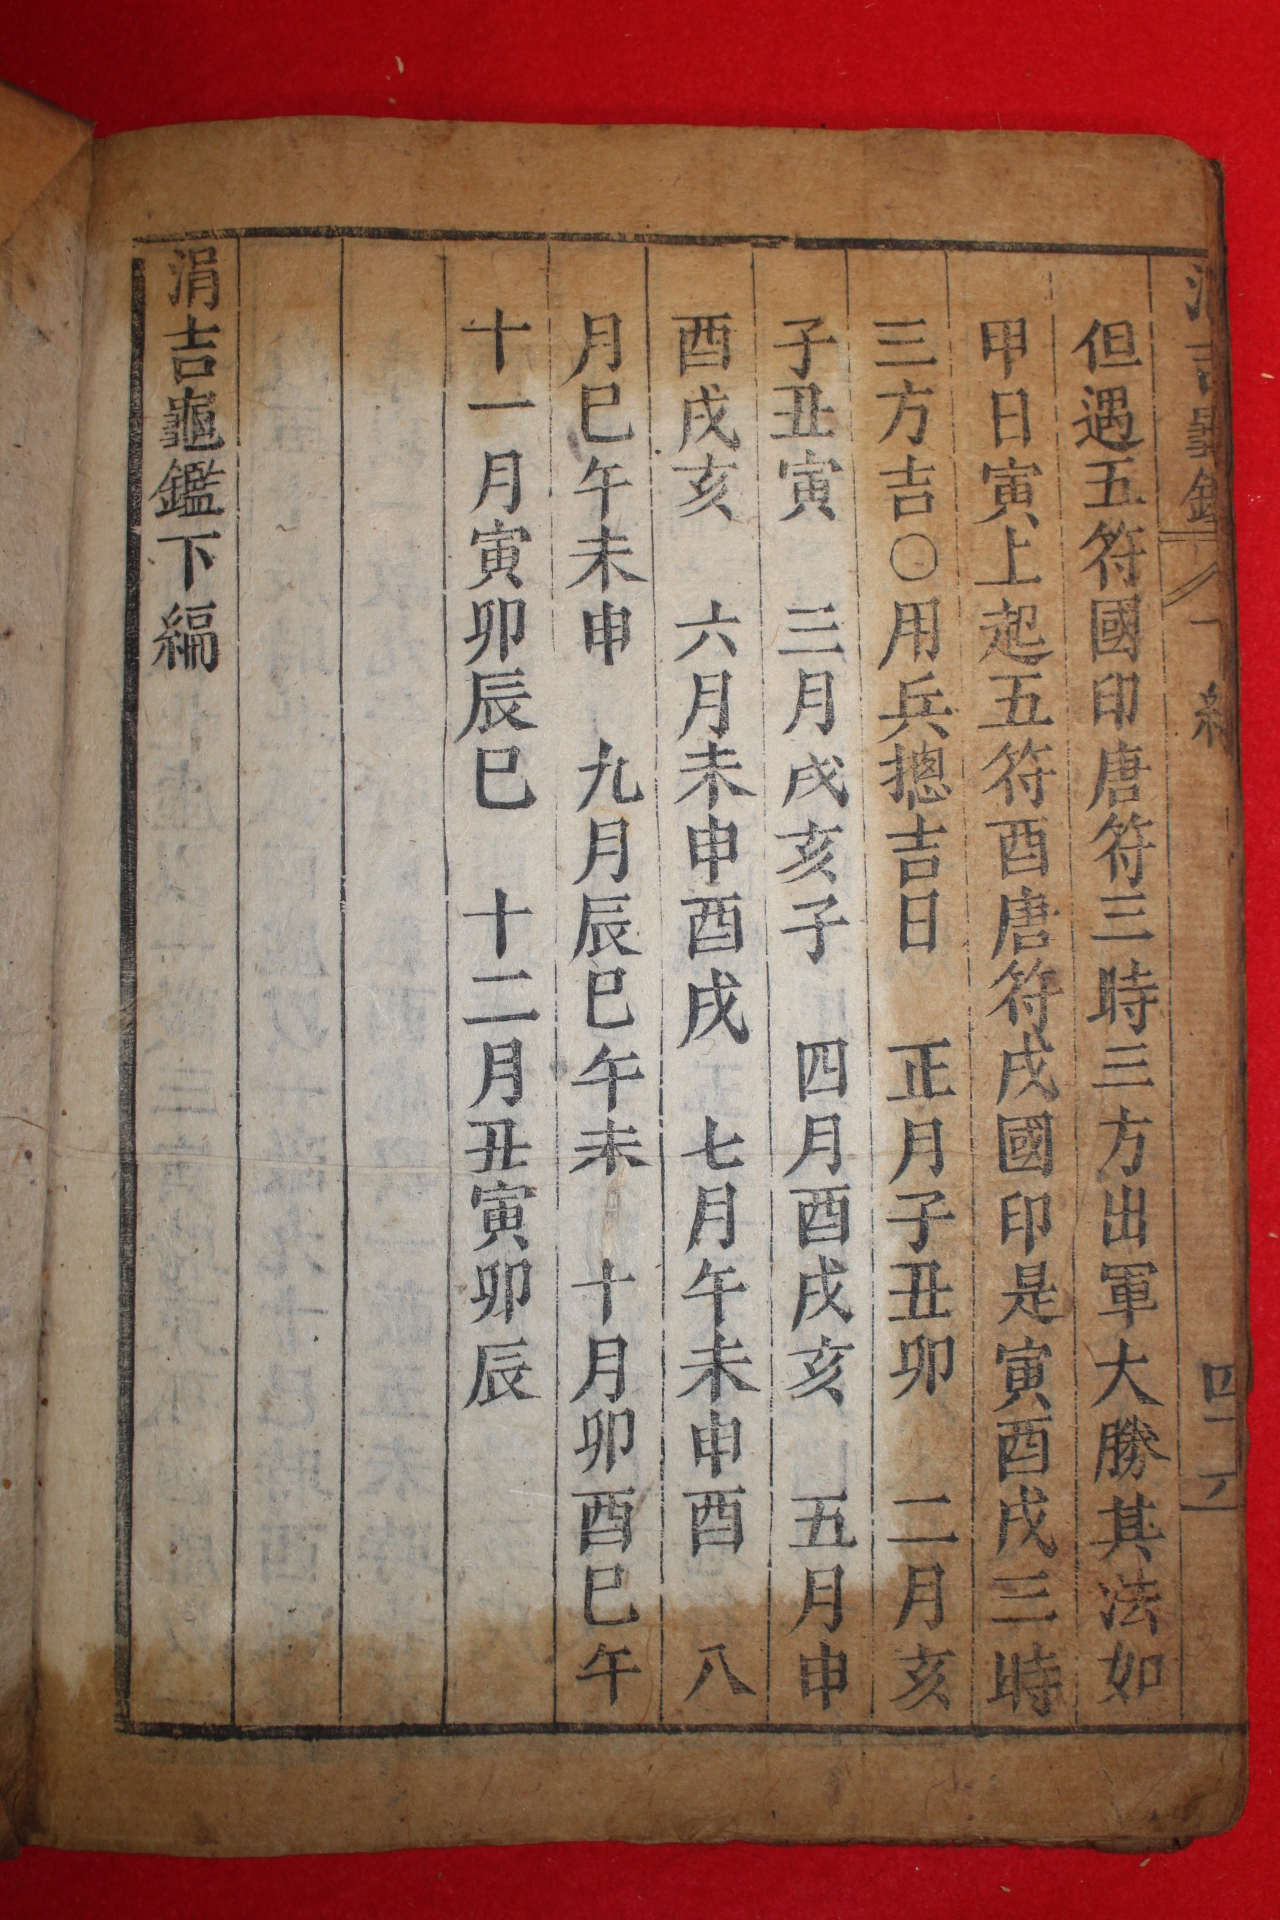 但遇五符國印唐符三時三方出軍大勝其法如
甲日寅上起五符酉唐符戌國印是寅酉戌三時
三方吉〇用兵摠吉日 正月子丑卯 二月亥
子丑寅 三月戌亥子 四月酉戌亥 五月申
酉戌亥 六月未申酉戌 七月午未申酉 八
月巳午未申 九月辰巳午未 十月卯酉巳午
十一月寅卯辰巳 十二月丑寅卯辰
涓吉龜鑑下編